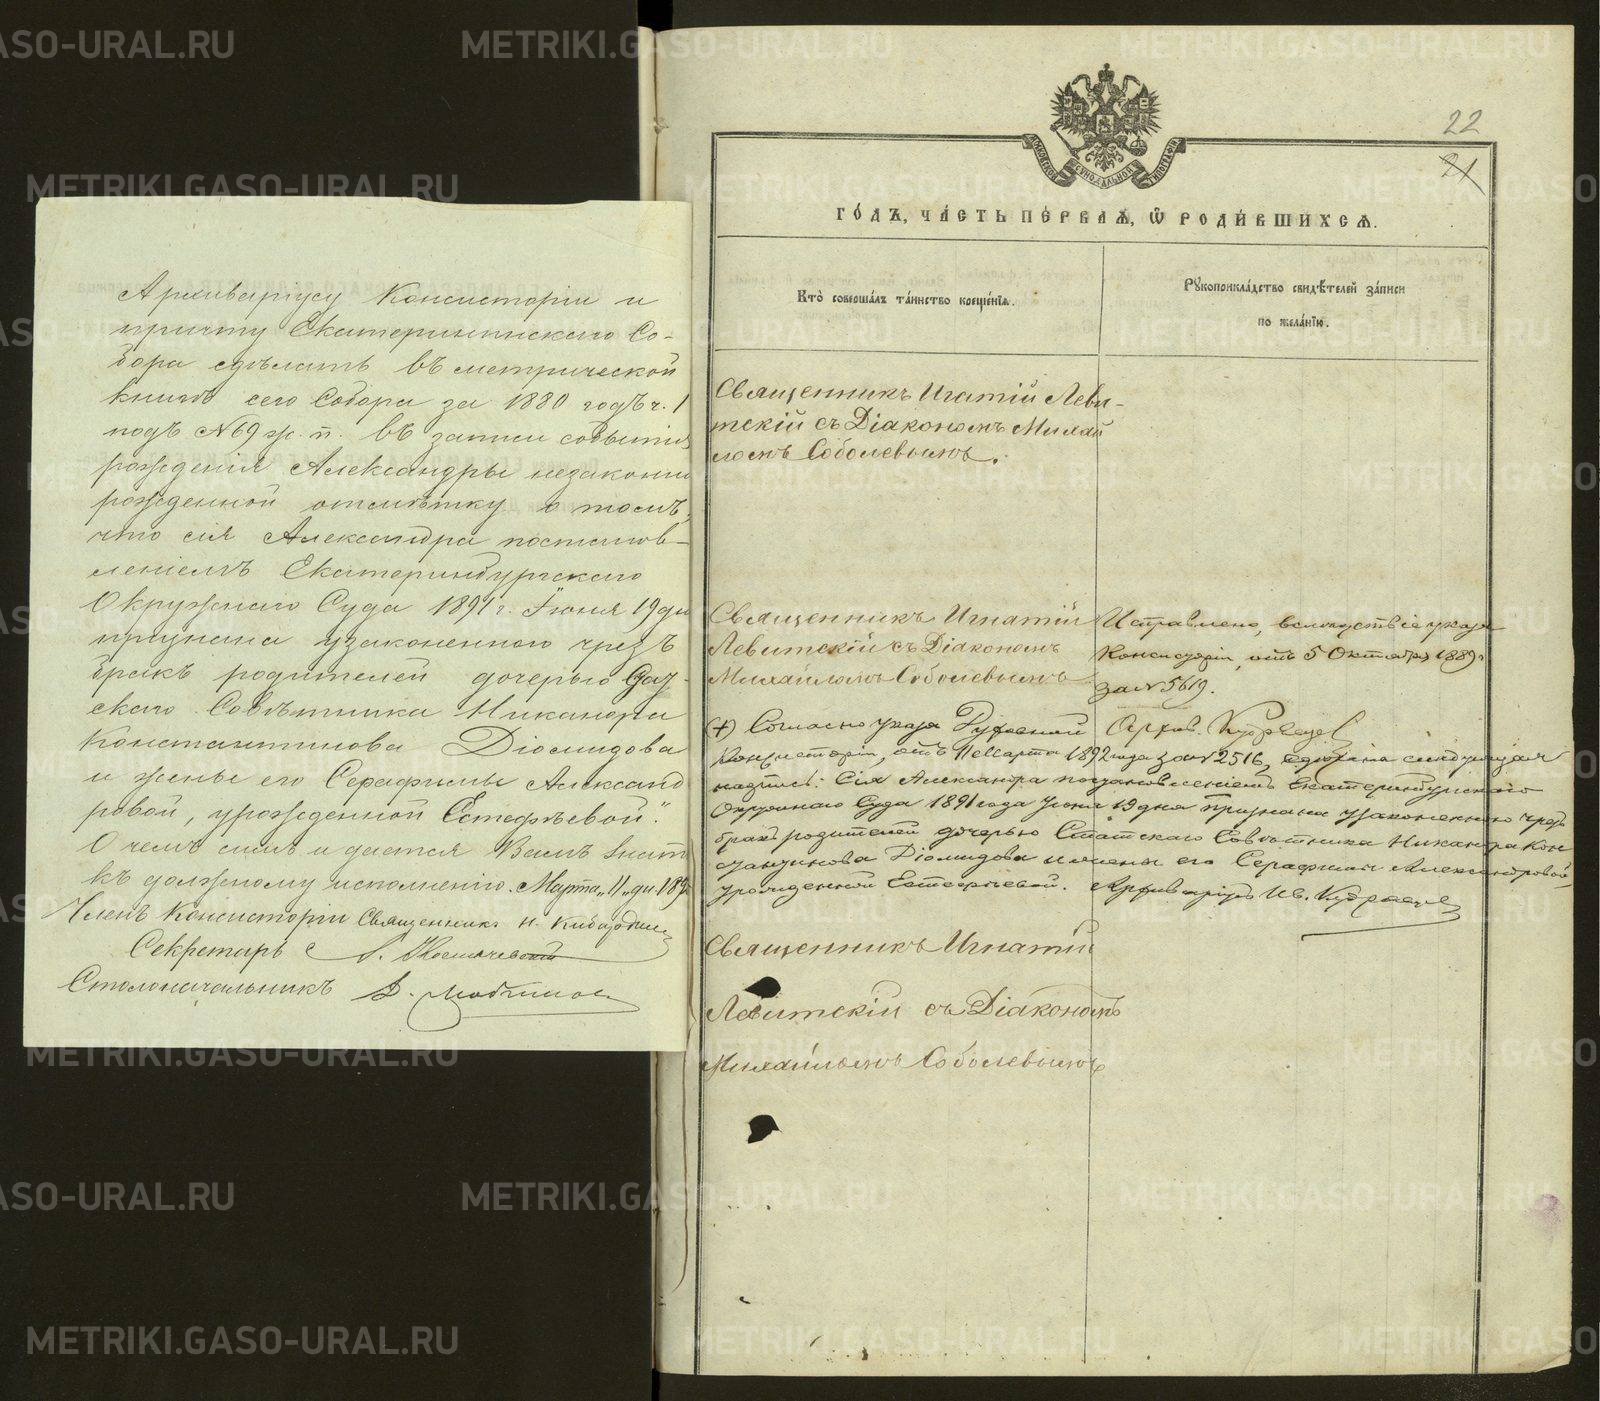 Архиваріусу Консисторіи и
причту Екатерининскаго Со-
бора сдѣлать въ метрической
книгѣ сего Собора за 1880 годъ ч. 1
подъ №69 ж. п. въ записи событія
рожденія Александры незаконно
рожденной отмѣтку о томъ,
что сія Александра постанов-
леніемъ Екатеринбургскаго
Окружнаго Суда 1891 г. Іюня 19 дня
признана узаконенною чрезъ
бракъ родителей дочерью Стат-
скаго Совѣтника Никанора
Константинова Діомидова
и жены его Серафимы Александ
ровой, урожденной Естефѣевой."
О чемъ симъ и дается Вамъ знать
къ должному исполненію. Марта „11" дн. 189
Членъ Консисторіи Священникъ Н.
Секретарь
Столоначальникъ
22
21
МОСКОВСКОЙ СѴНОДАЛЬНОЙ ТИПОГРАФІИ
ГО́ДЪ, ЧА́СТЬ ПЕ́РВАѦ, Ѡ҆ РОДИ́ВШИХСѦ.
Кто̀ соверша́лъ та́инство креще́нїѧ.
Рꙋкоприкла́дство свидѣ́телей за́писи
по жела́нїю.
Священникъ Игнатій Леви-
тскій съ Діакономъ Михаи
ломъ Соболевымъ.
Священникъ Игнатій
Левитскій съ Діакономъ
Михайломъ Соболевымъ
Исправлено, вслѣдствіе указа
Консисторіи, отъ 5 Октября 1889 г.
за № 5619.
Архив. Кудрявцев
(+) Согласно указа Духовной
Консисторіи, отъ 11 Марта 1892 года за № 2516, сдѣлана слѣдующая
надпись: Сія Александра постановленіемъ Екатеринбургскаго
Окружнаго Суда 1891 года Іюня 19 дня признана узаконенною чрезъ
бракъ родителей дочерью Статскаго Совѣтника Никанора Кон
стантинова Діомидова и жены его Серафимы Александровой,
урожденной Естефѣевой. Архиваріусъ Ив. Кудрявцев
Священникъ Игнатій
Левитскій съ Діакономъ
Михайломъ Соболевымъ
METRIKI.GASO-URAL.RU